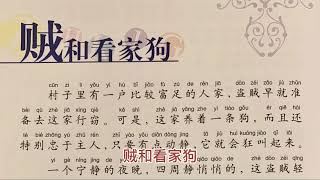 贼和看家狗
cūn zi lǐ yǒu yí hù bǐ jiào fù zú de rén jiā dào zéi zǎo jiù zhǔn
村子里有一户比较富足的人家，盗贼早就准
bèi qù zhè jiā xíng qiè kě shì zhè jiā yǎng zhe yì tiáo gǒu ér qiě hái
备去这家行窃。可是，这家养着一条狗，而且还
tè bié zhōng yú zhǔ rén zhǐ yào yǒu diǎn dòng jìng tā jiù huì kuáng jiào qǐ lái
特别忠于主人，只要有点动静，它就会狂叫起来。
yí gè níng jìng de yè wǎn sì zhōu jìng qiāo qiāo de zhè dào zéi qīng
一个宁静的夜晚，四周静悄悄的，这盗贼轻
贼和看家狗